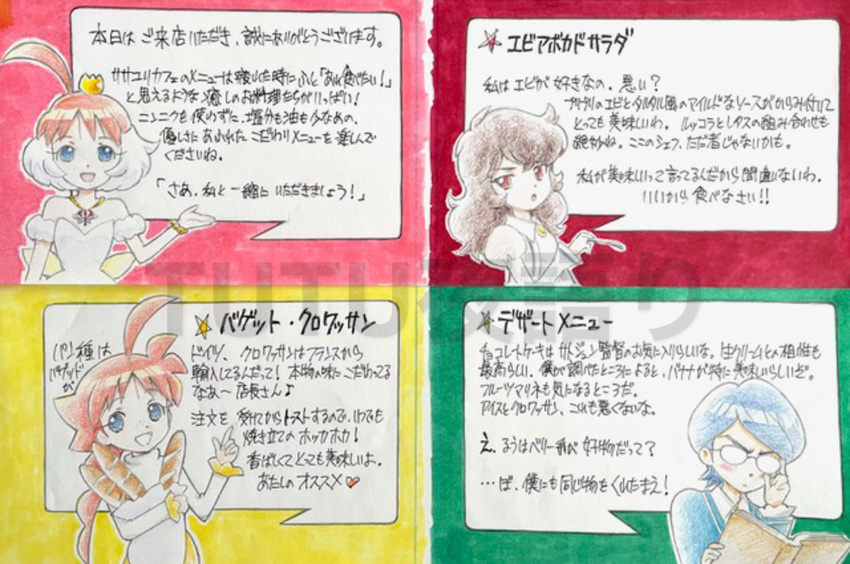 本日は ご来店いただき、誠にありがとうございます。
ササユリカフェのメニューは寝いた時にふと「あれ食べたい！」
と思えるような癒しのお料理たちがいっぱい！
ニンニクも使わずに、塩分も油も少なめの、
優しさにあふれたこだわりメニューを楽しんで
くださいね。
「さあ、私と一緒にいただきましょう！」
エビアボカドサラダ
私はエビが好きなの、悪い？
プリプリのエビとタルタル風のマイルドなソースがからみ付いて
とっても美味しいわ。ルッコラとレタスの組み合わせも
絶妙ね。ここのシェフ、ただ者じゃないかも。
私が美味しいって言ってるんだから間違いないわ。
いいから食べなさい!!
バゲット・クロワッサン
パン種は
バゲットが
ドイツ、クロワッサンはフランスから
輸入してるんだって！本物の味にこだわってる
なあ〜店長さん♪
注文を受けてからトーストするので、いつでも
焼き立てのホッカホカ！
香ばしくてとっても美味しいよ。
あたしのオススメ♡
デザートメニュー
チョコレートケーキはサトジュン監督のお気に入りらしいな。生クリームとの相性も
最高らしい。僕が調べたところによると、バナナが特に美味しいらしいぞ。
フルーツマリネも気になるところだ。
アイスとクロワッサン、これも悪くないな。
え、るぅはベリー系が好物だって？
…ぼ、僕にも同じ物をくれたまえ！
TUTU夜語り